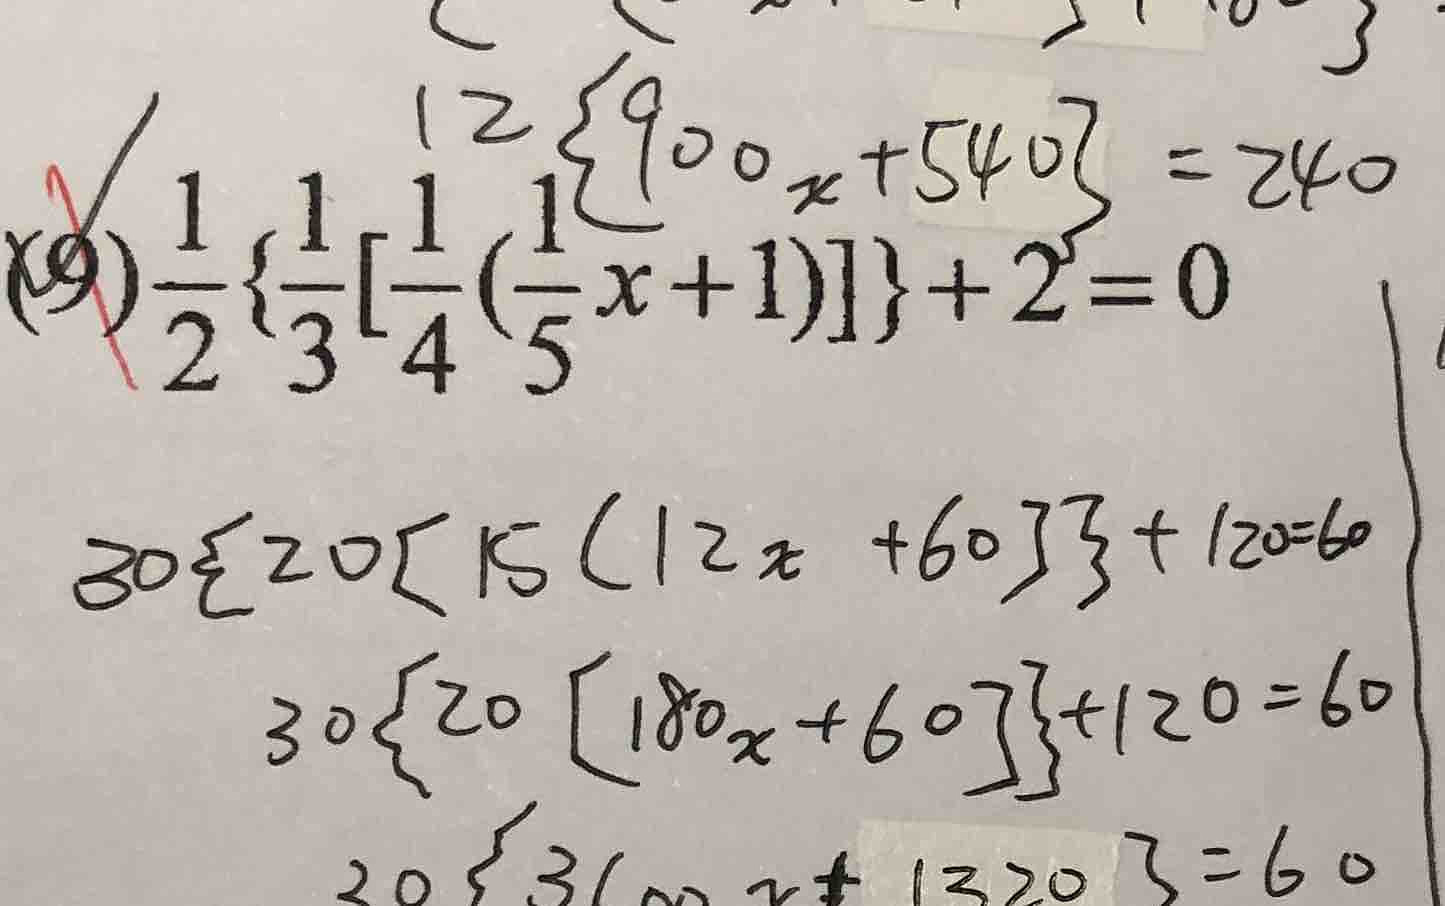 12{900x+540}=240
(9) 1/2{1/3[1/4(1/5x+1)]}+2=0
30{20[15(12x +60]}+120=60
30{20[180x+60]}+120=60
30{3600x+1320}=60